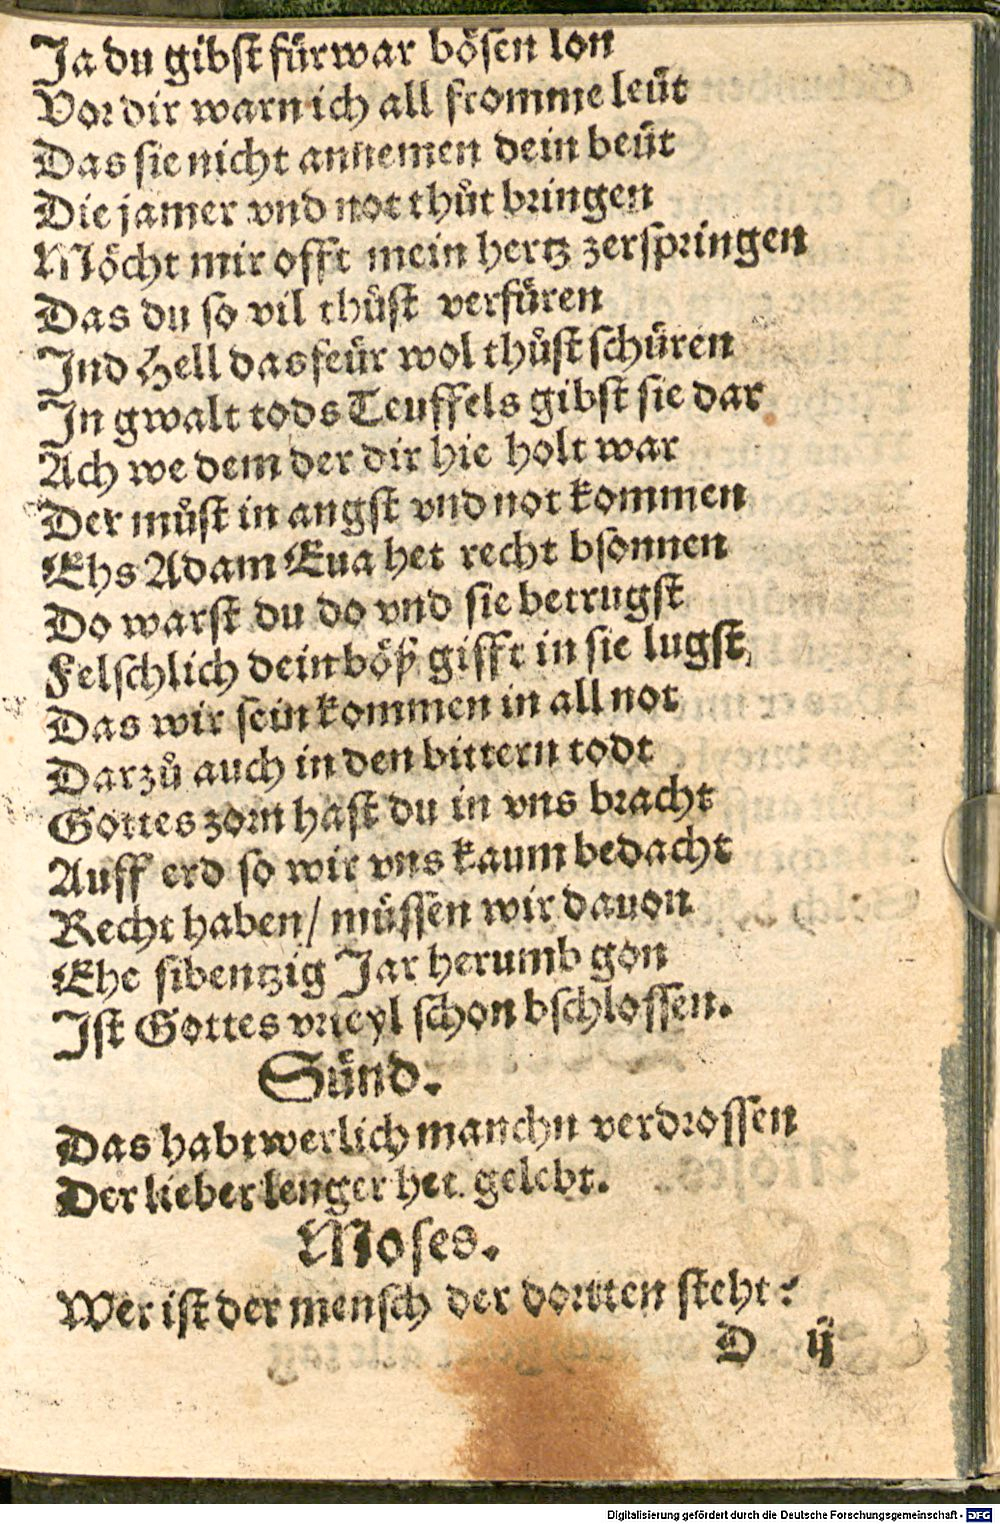 Ja du gibst fürwar bösen lon
Vor dir warn ich all fromme leüt
Das sie nicht annemen dein beüt
Die jamer vnd not thůt bringen
Möcht mir offt mein hertz zerspringen
Das du so vil thůst verfüren
Jnd Hell das feür wol thůst schüren
Jn gwalt tods Teuffels gibst sie dar
Ach we dem der dir hie holt war
Der můst in angst vnd not kommen
Ehs Adam Eua het recht bsonnen
Do warst du do vnd sie betrugst
Felschlich dein böß gifft in sie lugst,
Das wir sein kommen in all not
Darzů auch in den bittern todt
Gottes zorn hast du in vns bracht
Auff erd so wir vns kaum bedacht
Recht haben/ müssen wir dauon
Ehe sibentzig Jar herumb gon
Jst Gottes vrteyl schon bschlossen.
Sünd.
Das habt werlich manchn verdrossen
Der lieber lenger het gelebt.
Moses.
Wer ist der mensch der dortten steht?
D ij
Digitalisierung gefördert durch die Deutsche Forschungsgemeinschaft - DFG